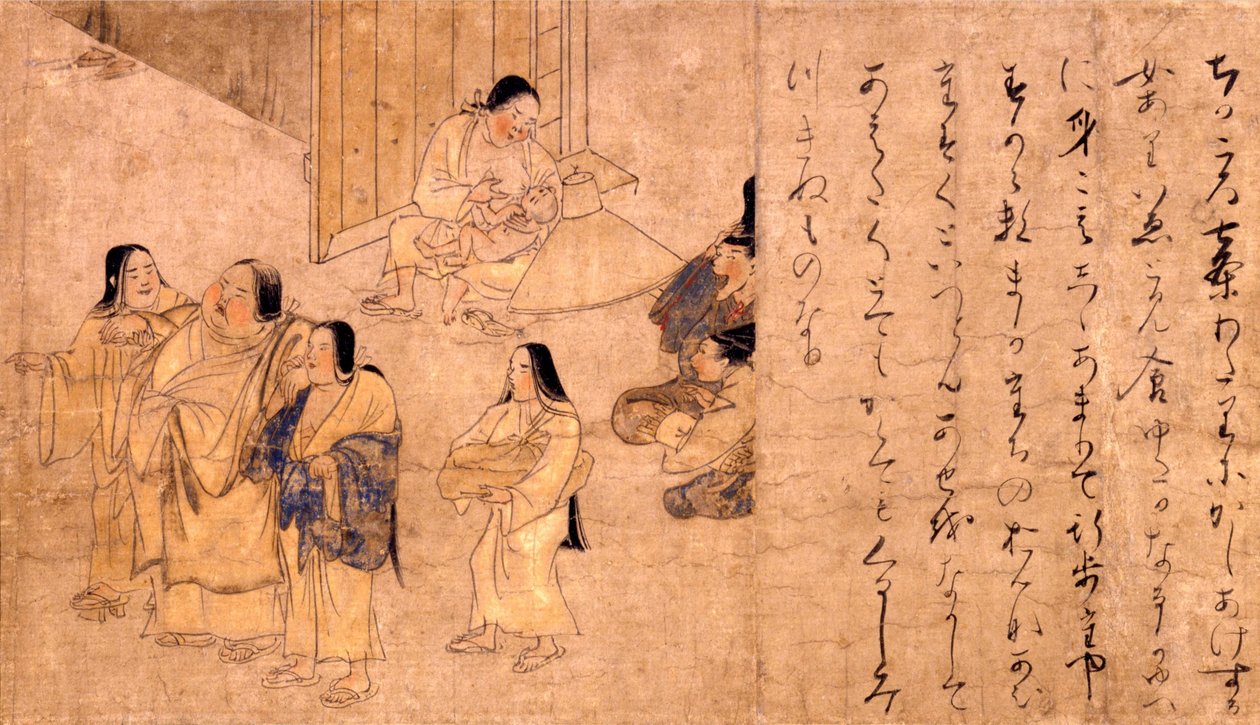 ちかころ七条わたりにかしあけする
女ありいゑとみ食ゆたかなるかゆへ
に身こえしゝあまりて行歩たや
すからすまかたちのおんなあひ
たすくといへともあせをなかして
とてもかくてもくるしみ
つきぬものなり